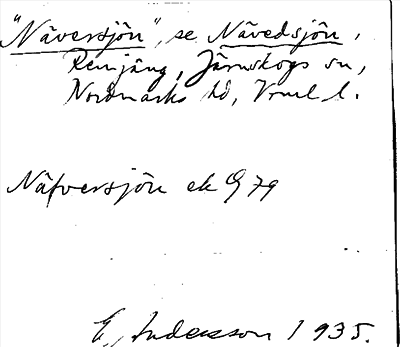 "Näversjön", se Nävedsjön,
Renjäng, Järnskogs sn,
Nordmarks hd, Vrml l.
Näfversjön ek Q 79
E. Andersson 1935.